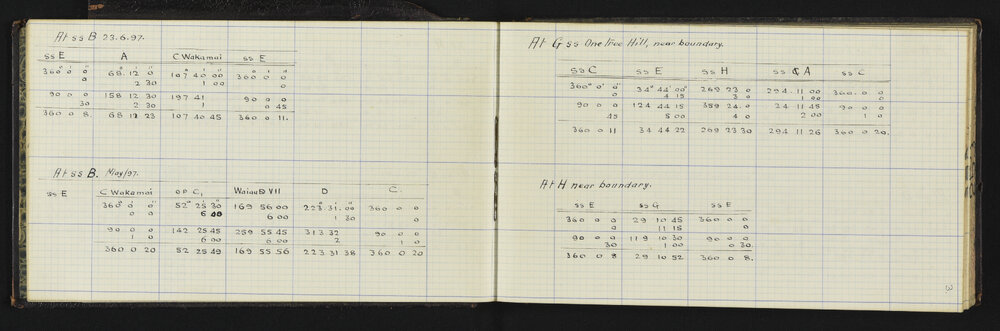 At ss B 23.6.97.
ss E A C Wakamai ss E
360° 0' 0" 68° 12' 0" 107° 40' 00" 360° 0' 0"
0 2 30 1 00 0
90 0 0 158 12 30 197 41 90 0 0
30 2 30 1 0 45
360 0 8. 68 12 23 107 40 45 360 0 11.
At ss B. May/97.
ss E C Wakamai O P C, Waiau D VII D C.
360° 0' 0" 52° 25' 30" 169 56 00 223. 31. 00 360 0 0
0 0 6 00 6 00 1 30 0
90 0 0 142 25 45 259 55 45 313 32 90 0 0
1 0 6 00 6 00 2 1 0
360 0 20 52 25 49 169 55 56 223 31 38 360 0 20
At G ss One Tree Hill, near boundary.
ss C ss E ss H ss A ss C
360° 0' 0" 34° 44' 00" 269 23 0 294. 11 00 360. 0 0
0 4 15 3 0 1 00 0
90 0 0 124 44 15 359 24. 0 24 11 45 90 0 0
45 5 00 4 0 2 00 1 0
360 0 11 34 44 22 269 23 30 294 11 26 360 0 20.
At H near boundary.
ss E ss G ss E
360 0 0 29 10 45 360 0 0
0 11 15 0
90 0 0 119 10 30 90 0 0
30 1 00 0 30
360 0 8 29 10 52 360 0 8.